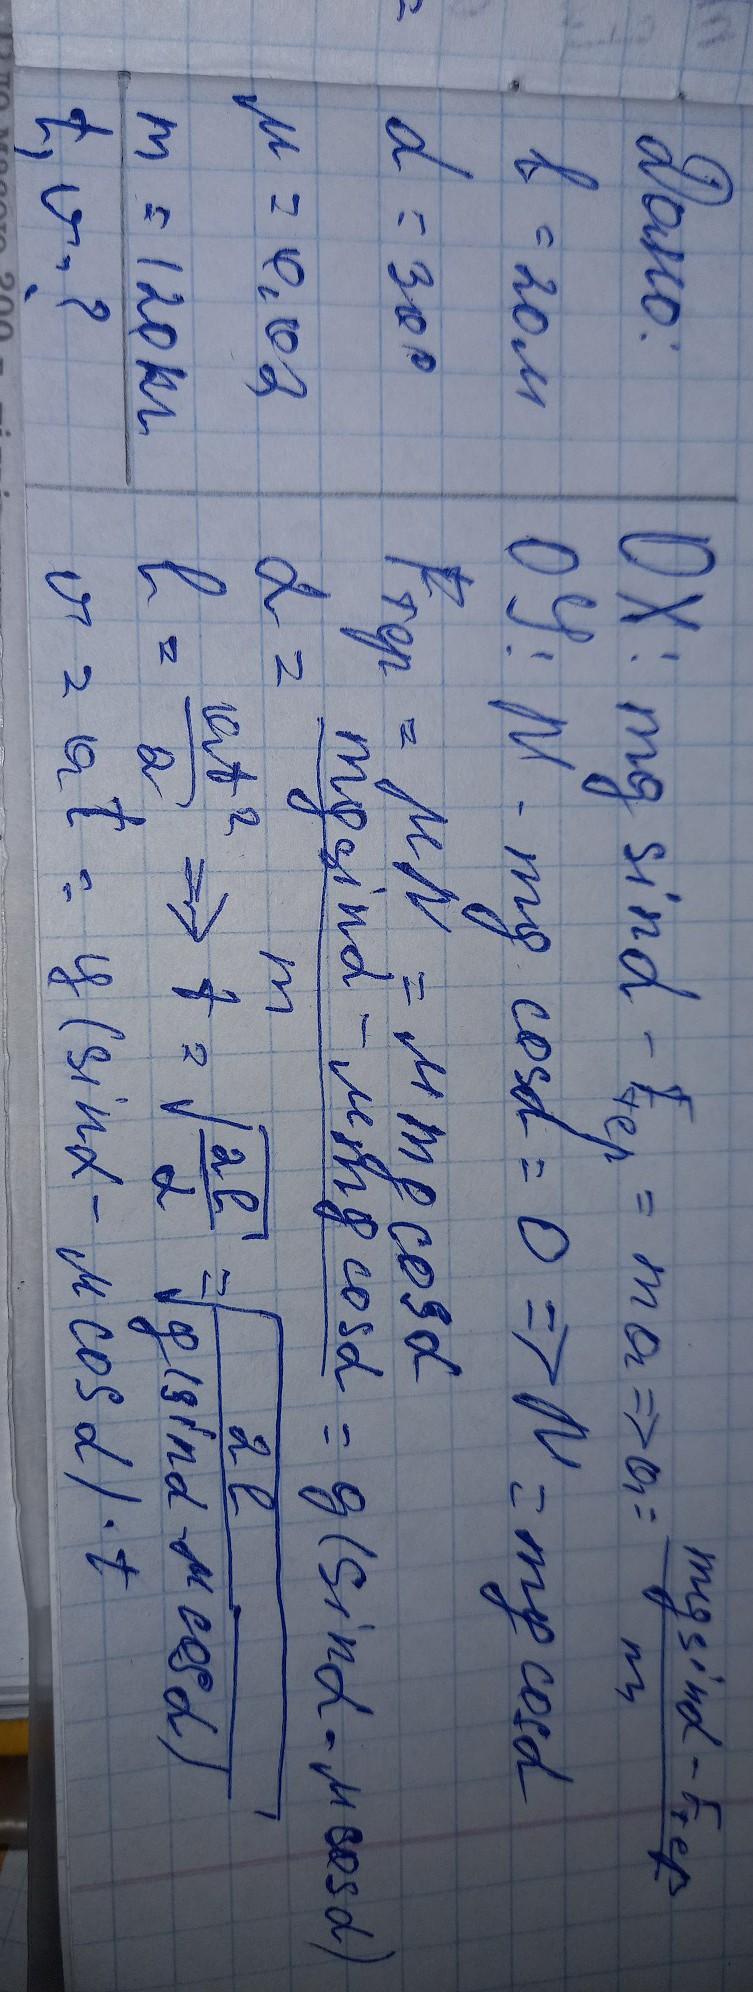 Дано:
l = 20м
α = 30°
μ = 0,02
m = 120кг
t, v, ?
OX: mg sinα - Fтер = ma => a = (mg sinα - Fтер)/m
OY: N - mg cosα = 0 => N = mg cosα
Fтер = μN = μmg cosα
a = (mg sinα - μmg cosα)/m = g(sinα - μcosα)
l = at²/2 => t = √(2l/a) = √(2l/(g(sinα - μcosα)))
v = at = g(sinα - μcosα)·t